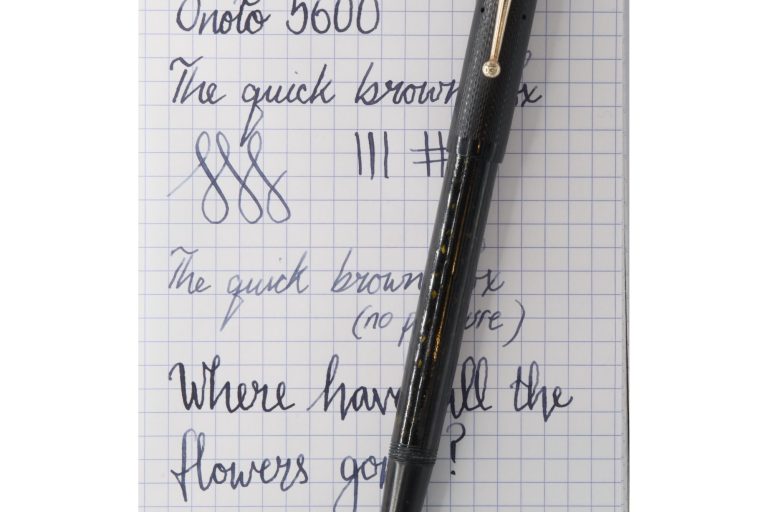 Onoto 5600
The quick brown fox
||| #
The quick brown fox
(no pressure)
Where have all the
flowers gone?